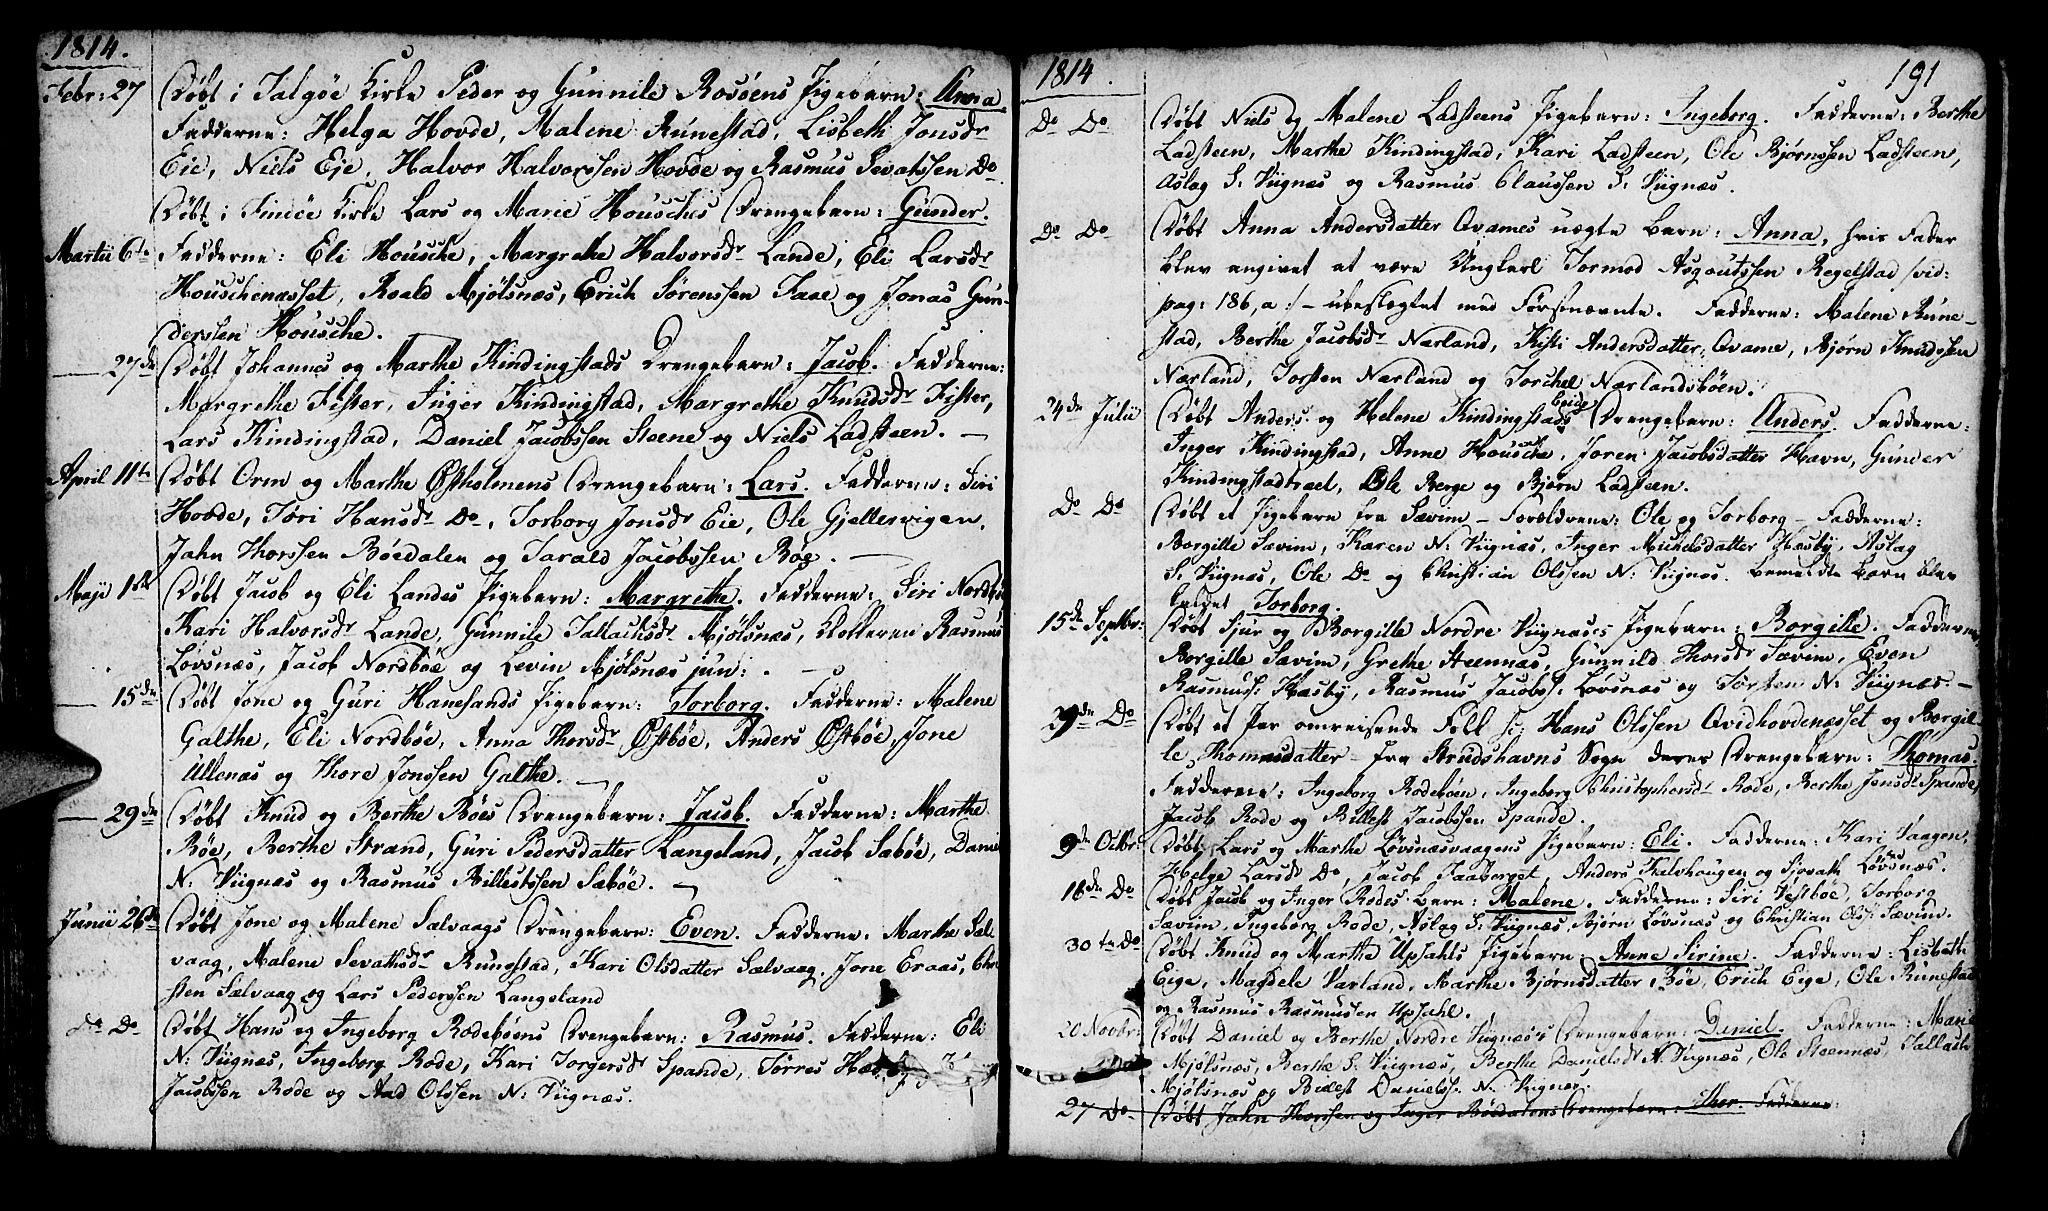 1814.
Febr: 27 Døbt i Talgøe Kirke Peder og Gunnile Rosøens Pigebarn: Anna
Fadderne: Helga Hovde, Malene Runestad, Lisbeth Jonsdr
Eie, Niels Eje, Halvor Halvorssen Hovde og Rasmus Sevatssen Do
Døbt i Findöe Kirke Lars og Marie Housches Drengebarn: Gunder.
Martii 6te Fadderne: Eli Housche, Margrethe Halvorsdr Lande, Eli Larsdr
Houschenæsset, Roald Mjølsnæs, Erich Sørenssen Faae og Jonas Gun-
derssen Housche.
— 27de Døbt Johannes og Marthe Kindingstads Drengebarn: Jacob. Fadderne:
Margrethe Fister, Inger Kindingstad, Margrethe Knudsdr Fister,
Lars Kindingstad, Daniel Jacobssen Steene og Niels Ladsteen. —
April 11te Døbt Orm og Marthe Østholmens Drengebarn: Lars. Fadderne: Siri
Hovde, Töri Hansdr Do, Torborg Jonsdr Eie, Ole Gjellesvigen,
Jahn Thorssen Böedalen og Tarald Jacobssen Bøe. —
Maji 1ste Døbt Jacob og Eli Landes Pigebarn: Margrethe. Fadderne: Siri Nordbøe
Kari Halvorsdr Lande, Gunnile Tallachsdr Mjølsnæs, Klokkeren Rasmus
Løvsnæs, Jacob Nordbøe og Levin Mjølsnæs jun: . —
— 15de Døbt Jone og Guri Hanesands Pigebarn: Torborg. Fadderne: Malene
Galthe, Eli Nordbøe, Anna Thorsdr Østbøe, Anders Østbøe, Jone
Ullenæs og Thore Jonssen Galthe. —
— 29de Døbt Knud og Berthe Bøes Drengebarn: Jacob. Fadderne: Marthe
Bøe, Berthe Strand, Guri Pedersdatter Langeland, Jacob Sæbøe, Daniel
N: Viignæs og Rasmus Billestssen Sæbøe. —
Junii 26de Døbt Jone og Malene Sælvaags Drengebarn: Even. Fadderne: Marthe Sæl-
vaag, Malene Sevathsdr Runestad, Kari Olsdatter Sælvaag, Jone Eraas,
sten Sælvaag og Lars Pederssen Langeland
Do Do Døbt Hans og Ingeborg Rodebøens Drengebarn: Rasmus. Fadderne: Eli
N: Viignæs, Ingeborg Rode, Kari Torgersdr Spande, Törres
Jacobssen Rode og Aad Olssen N: Viignæs.
1814. 191
Do Do Døbt Niels og Malene Ladsteens Pigebarn: Ingeborg. Fadderne: Berthe
Ladsteen, Marthe Kindingstad, Kari Ladsteen, Ole Bjørnssen Ladsteen,
Aslag S: Viignæs og Rasmus Claussen S: Viignæs.
Do Do Døbt Anna Andersdatter Qvames uægte Barn: Anna, hvis Fader
blev angivet at være Ungkarl Tormod Asgoutssen Regelstad /vid:
pag: 186, a :/ — ubeslægtet med Førstnævnte. Fadderne: Malene Rune-
stad, Berthe Jacobsdr Nærland, Kisti Andersdatter Qvame, Bjørn Knudssen
Nærland, Torsten Nærland og Torchel Nærlandsbøen.
24de Julii Døbt Anders og Helene Kindingstads Eeide Drengebarn: Anders. Fadderne:
Inger Kindingstad, Anne Housche, Joren Jacobsdatter Havn, Gunder
Kindingstadtræet, Ole Berge og Bjørn Ladsteen.
Do Do Døbt et Pigebarn fra Sævim — Forældrene: Ole og Torborg — Fadderne:
Borgille Sævim, Karen N: Viignæs, Inger Michelsdatter Hæsby, Aslag
S: Viignæs, Ole Do og Christian Olssen N: Viignæs. Bemeldte Barn blev
kaldet Torborg.
15de Septbr: Døbt Sjur og Borgille Nordre Viignæses Pigebarn: Borgille. Fadderne:
Borgille Sævim, Grethe Steennæs, Gunnild Thorsdr Sævim, Even
Rasmuss: Hæsby, Rasmus Jacobs: Løvsnæs og Torsten N: Viignæs. —
29de Do Døbt et Par omreisende Folk sc: Hans Olssen Qvidhovdenæsset og Borgil-
le Thomasdatter — fra Strudshavns Sogn deres Drengebarn: Thomas.
Fadderne: Ingeborg Rodebøen, Ingeborg Christophersdr Rode, Berthe Jonsdr Spande,
Jacob Rode og Billest Jacobssen Spande.
9de Octbr: Døbt Lars og Marthe Løvsnæsvaagens Pigebarn: Eli. Fadderne: Kari Vaagen,
Helge Larsdr Do, Jacob Faaberget, Anders Kalvhaugen og Sjovath Løvsnæs.
16de Do Døbt Jacob og Inger Rodes Barn: Malene. Fadderne: Siri Vestbøe, Torborg
Sævim, Ingeborg Rode, Aslag S: Viignæs, Bjørn Løvsnæs og Christian Olss: Sævim.
30te Do Døbt Knud og Marthe Upsahls Pigebarn: Anne Sirine. Fadderne: Lisbeth
Eige, Magdele Varland, Marthe Bjørnsdatter Bøe, Erich Eige, Ole Runestad
og Rasmus Rasmussen Upsahl.
20 Novbr: Døbt Daniel og Berthe Nordre Viignæses Drengebarn: Daniel. Fadderne: Marie
Mjølsnæs, Berthe S: Viignæs, Berthe Danielsdr N: Viignæs, Ole Steennæs, Tallach
Mjølsnæs og Billest Danielss: N: Viignæs.
27 Do Døbt Jahn Thorssen og Inger Bøedalens Drengebarn: Thor. Fadderne: